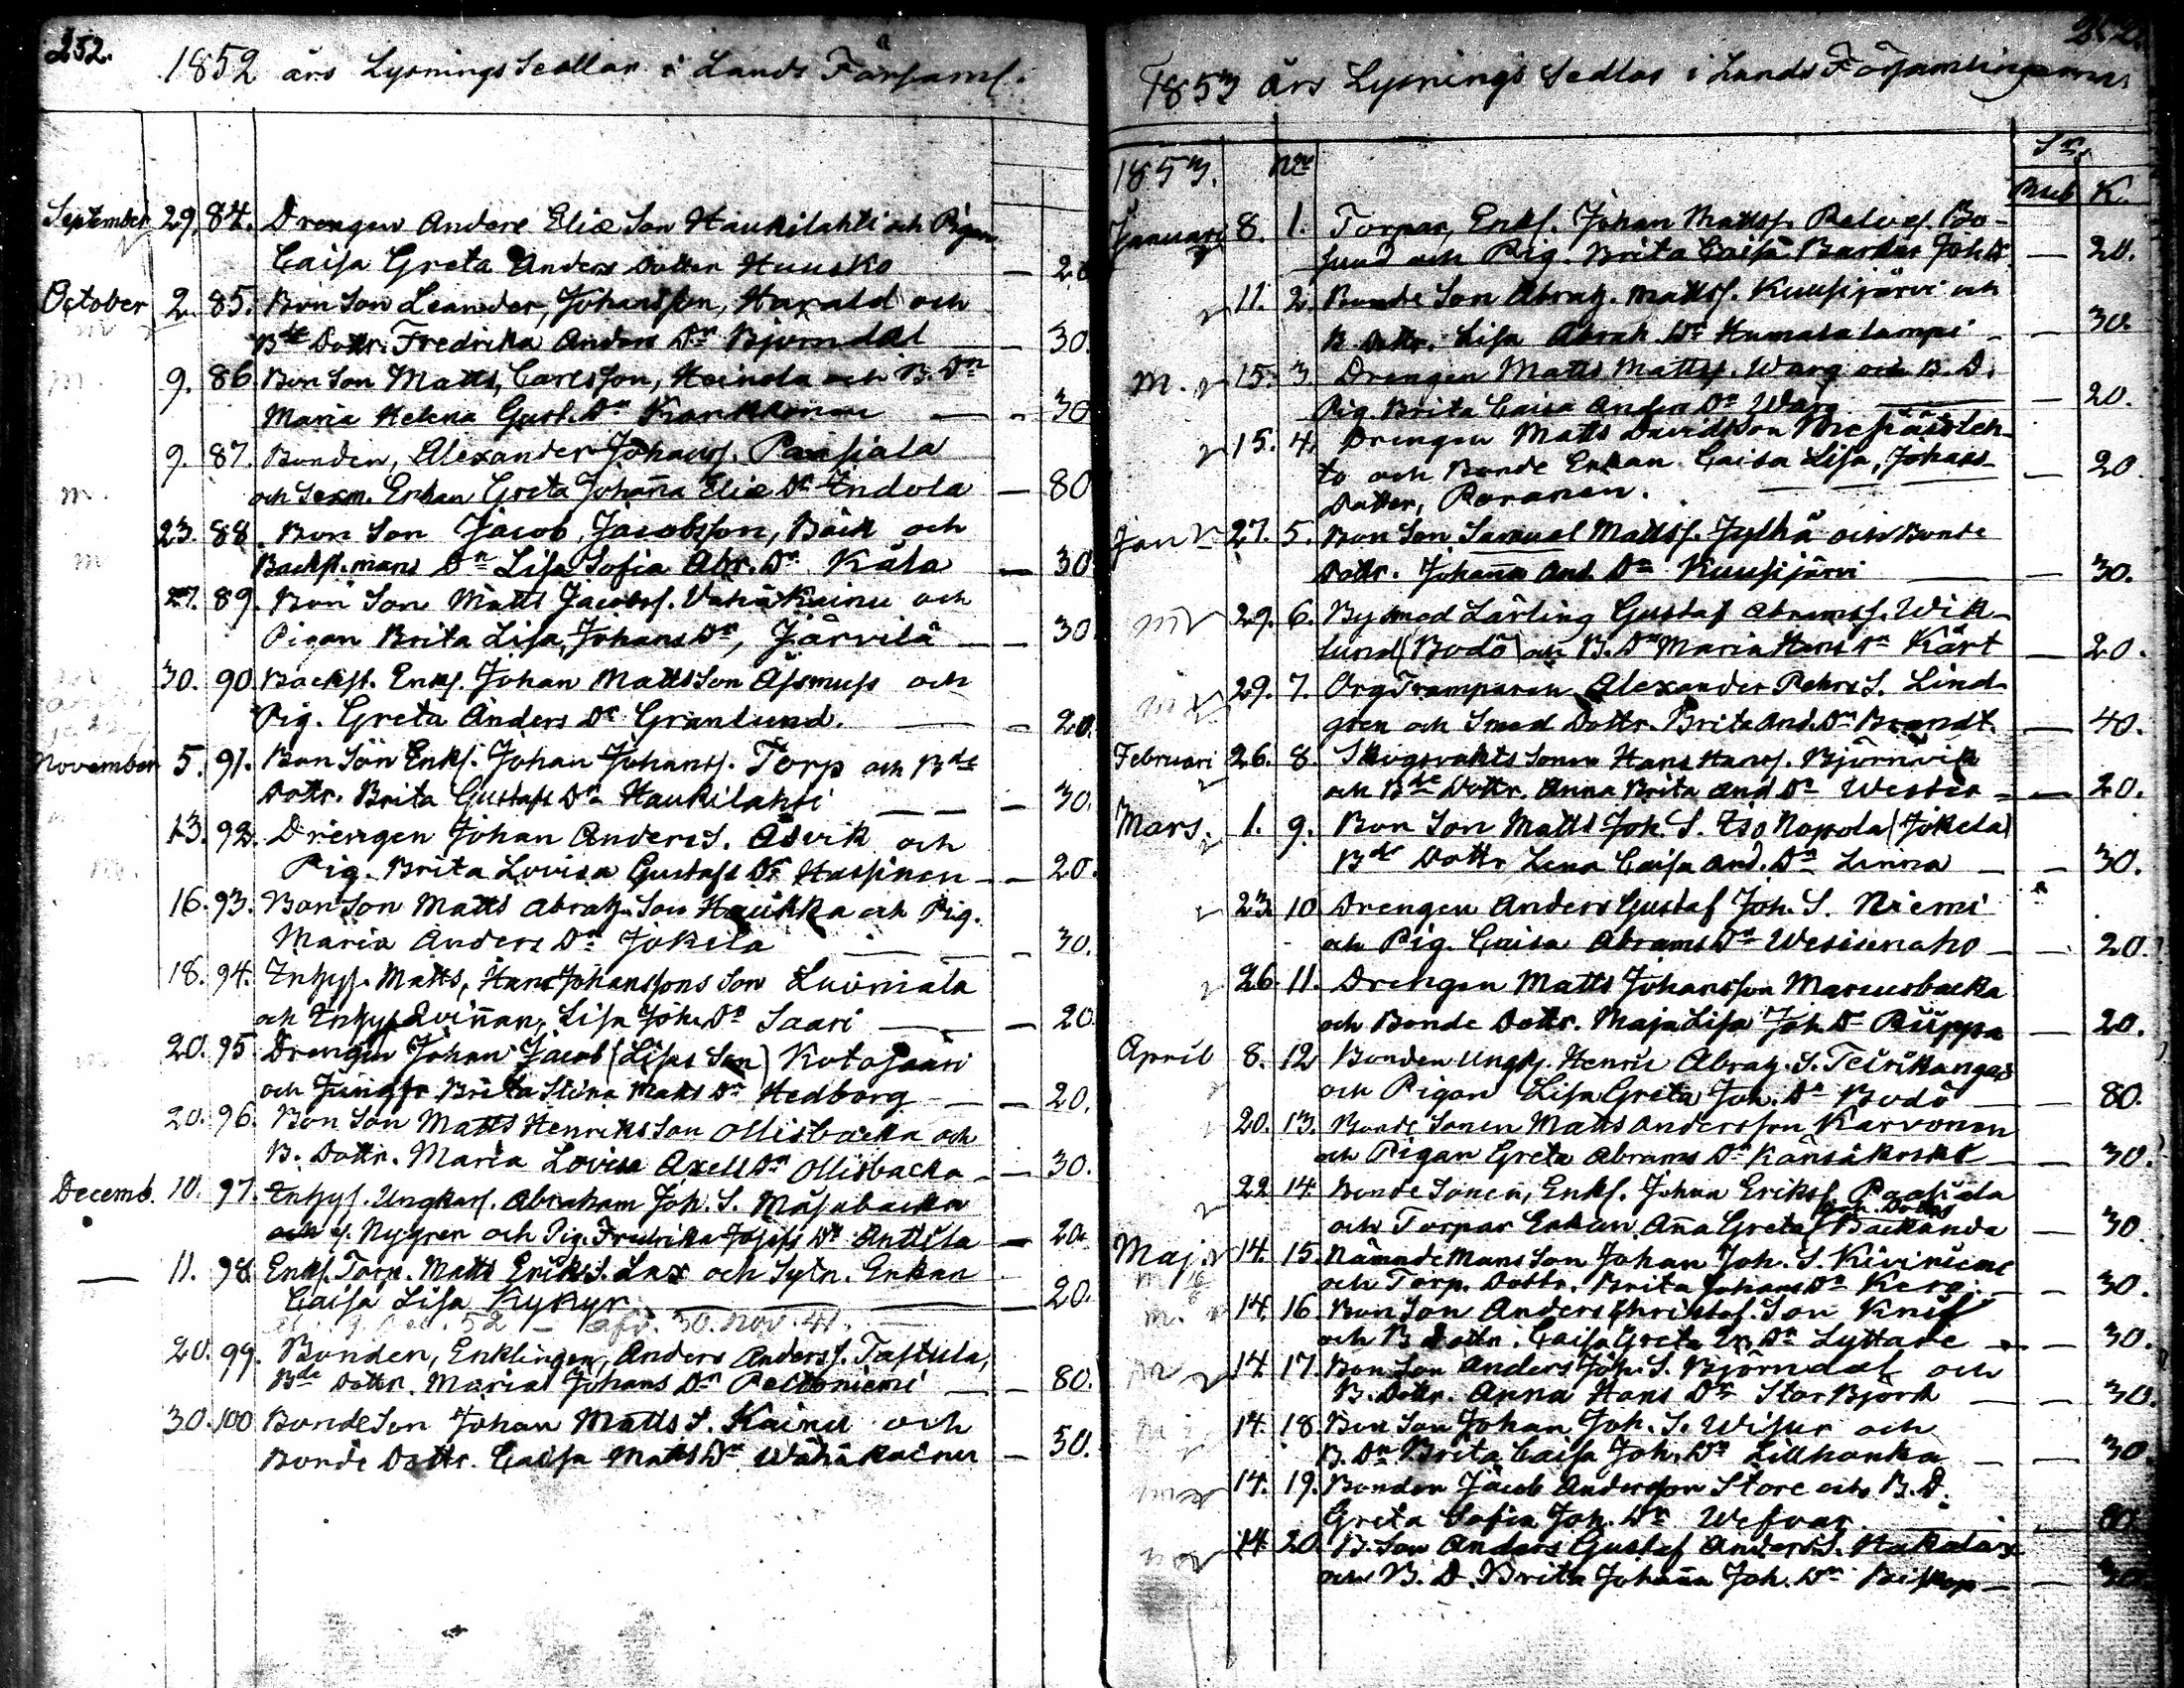 252.
1852 års Lysnings Sedlar i Lands Församl.
September 29. 84. Drengen Anders Eliæ Son Haukilahti och Pigan
Caisa Greta Anders Dotter Huusko — 20
October 2. 85. Bon Son Leander, Johansson, Harald och
Bde Dottr. Fredrika Anders Dr Björndal — 30.
m. 9. 86. Bon Son Matts, Carlsson, Heinola och B. Dr
Maria Helena Gust. Dr Karkkinen — 30
9. 87. Bonden, Alexander Johanss. Passiala
m. och Sexm. Enkan Greta Johanna Eliæ Dr Indola — 80
23. 88. Bon Son Jacob, Jacobsson, Bäck och
m Backst.mans Dr Lisa Sofia Abr. Dr Kåla — 30
27. 89. Bon Son Matts Jacobss. Vähä Kainu och
Pigan Brita Lisa, Johans Dr, Järvilä — 30
30. 90. Backst. Enkl. Johan Mattsson Åsmuss och
Pig. Greta Anders Dr Granlund. — 20.
November 5. 91. Bon Sön Enkl. Johan Johanss. Torp och Bde
Dottr. Brita Gustafs Dr Haukilahti — 30.
13. 92. Drengen Johan Anders S. Åsvik och
m. Pig. Brita Lovisa Gustafs Dr Hassinen — 20.
16. 93. Bon Son Matts Abrah. Son Haukka och Pig.
Maria Anders Dr Jokela — 30.
18. 94. Inhys. Matts, Hans Johanssons Son Luomala
och Inhys Qvinnan, Lisa Joh. Dr Saari — 20
20. 95. Drengen Johan Jacob (Lisas Son) Kotosaari
och Jungfr Brita Stina Matts Dr Hedborg — 20.
20. 96. Bon Son Matts Henriksson Ollisbacka och
B. Dottr. Maria Lovisa Axell Dr Ollisbacka — 30.
Decemb. 10. 97. Inhys. Ungkarl. Abraham Joh. S. Måsabacka
och Nygren och Pig. Fredrika Josefs Dr Anttila — 20.
— 11. 98. Enkl. Torp. Matts Eriks S. Lax och Sytn. Enkan
Caisa Lisa Kykyr — 20.
52 — 30. Nov. 41.
20. 99. Bonden, Enklingen, Anders Anderss. Tastula,
Bde Dottr. Maria Johans Dr Peltoniemi — 80.
30. 100 Bonde Son Johan Matts S. Kainu och
Bonde Dottr. Caisa Matts Dr Wähäkainu — 50.
1853 års Lysnings Sedlar i Lands Församlingarna
1853. No Sr.
Rub K.
Januari 8. 1. Torpar, Enkl. Johan Mattss. Relvas. Bo-
sund och Pig. Brita Caisa Barkar Joh. D. — 20.
11. 2. Bonde Son Abrah. Mattss. Kuusijärvi och
B. Dottr. Lisa Abrah. Dr Humalalampi — 30.
m. 15. 3. Drengen Matts Mattss. Warg och B. D.
Pig. Brita Caisa Anders Dr Warg — 20.
15. 4. Drengen Matts Davidsson
to och Bonde Enkan Caisa Lisa, Johans — 20
Dotter, Poranen.
Jan 27. 5. Bon Son Samuel Mattss. Jylhä och Bonde
Dottr. Johanna And. Dr Kuusijärvi — 30.
m 29. 6. Bysmed Lärling Gustaf Abramss. Wik-
lund (Bodö) och B. Dr Maria Hans Dr Kårt — 20.
m 29. 7. Org Tramparen Alexander Pehrs S. Lind-
gren och Smed Dottr. Brita And. Dr Brandt. — 40.
Februari 26. 8. Skogsvakts Sonen Hans Hanss. Björnvik
och Bde Dottr. Anna Brita And Dr Wester — 20.
Mars. 1. 9. Bon Son Matts Joh. S. Iso Nopola (Jokela)
Bde Dottr Lena Caisa And. Dr Linna — 30.
23. 10 Drengen Anders Gustaf Joh. S. Niemi
och Pig. Caisa Abrams Dr Wesisenaho — 20.
26. 11. Drengen Matts Johansson Marcusbacka
och Bonde Dottr. Maja Lisa Joh. Dr Riippa — 20.
April 8. 12 Bonden Ungk. Henric Abrah. S. Teirikangas
och Pigan Lisa Greta Joh. Dr Bodö — 80.
20. 13. Bonde Sonen Matts Andersson Karvonen
och Pigan Greta Abrams Dr Känsäkoski — 30.
22 14. Bonde Sonen, Enkl. Johan Erikss. Passiala
Joh. Dotter
och Torpar Enkan Anna Greta Backända — 30
Maj. 14. 15. Nämndemans Son Johan Joh. S. Kiviniemi
m och Torp. Dottr. Brita Johans Dr Kero. — 30.
m. 14. 16 Bon Son Anders Christof. Son Knif
och B Dottr. Caisa Greta Er. Dr Lyttare — 30.
m 14. 17. Bon Son Anders Joh. S. Björndal och
B. Dottr. Anna Hans Dr Stor Björk — 30.
m 14. 18. Bon Son Johan Joh. S. Wisur och
B. Dr Brita Caisa Joh. Dr Lillhonka — 30.
14. 19. Bonden Jacob Andersson Store och B. D.
Greta Sofia Joh. Dr Wefvar — 80.
14. 20. B. Son Anders Gustaf Anders S. Hakalax
och B. D. Brita Johanna Joh. Dr Biskop — 30.